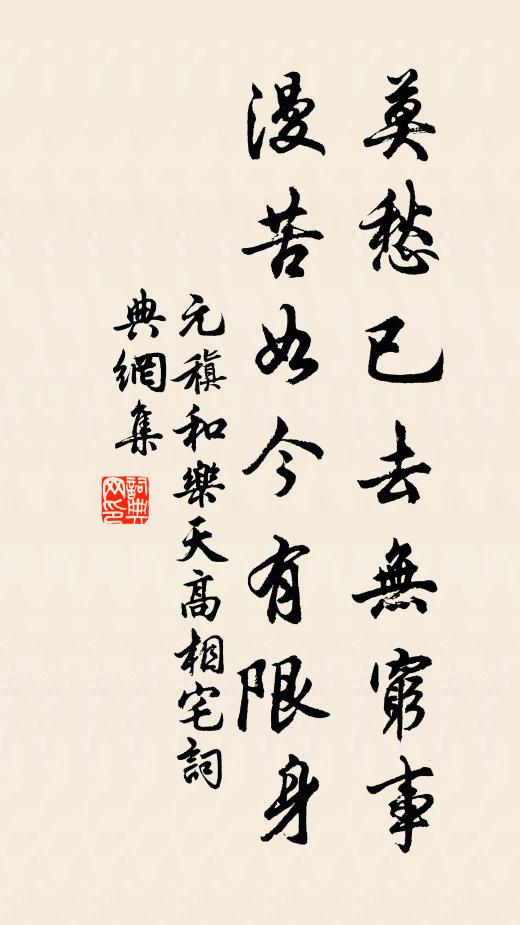 莫愁已去無窮事
漫苦如今有限身
元稹和樂天高相宅詞
典網集
詞典网印